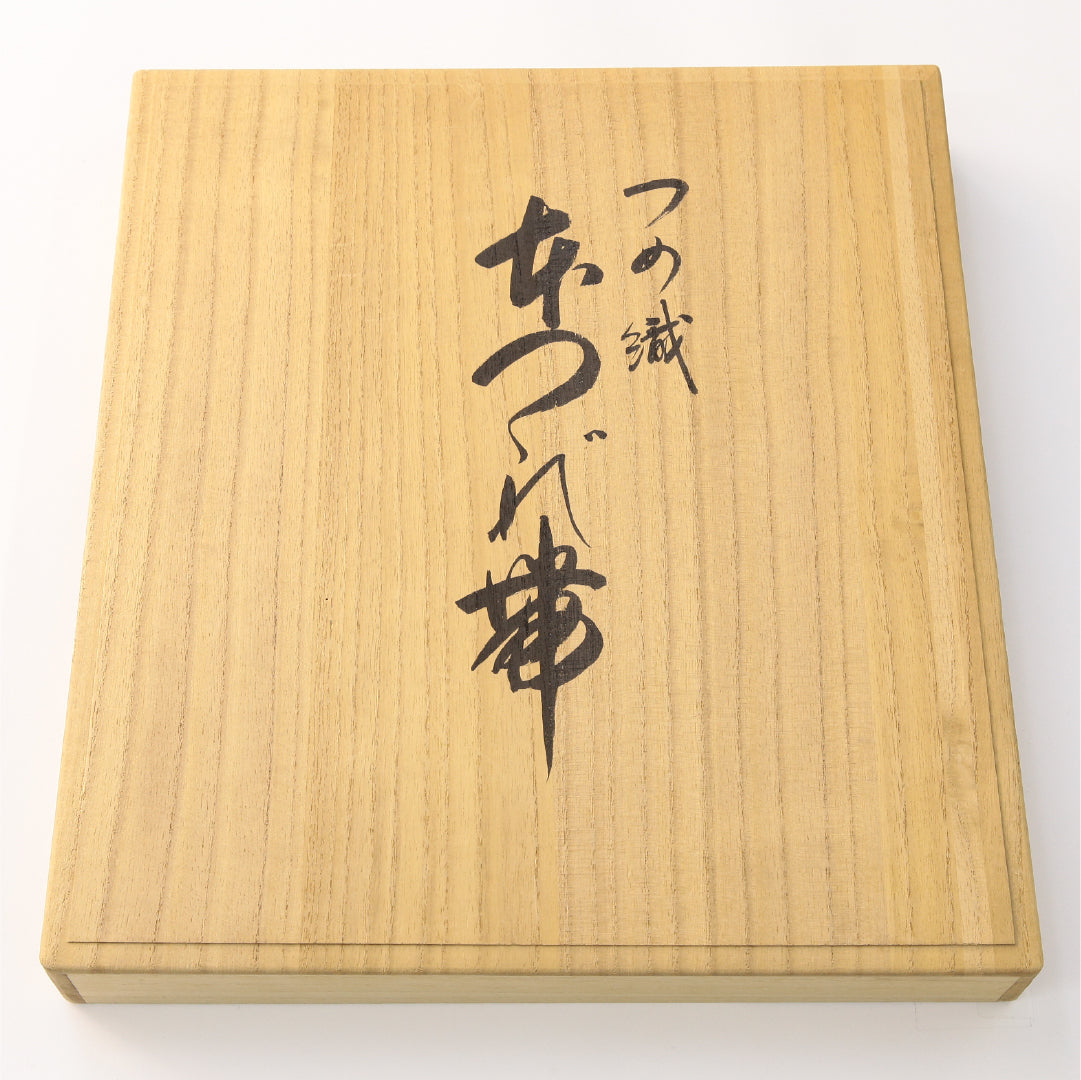 つめ織
本つゞれ帯